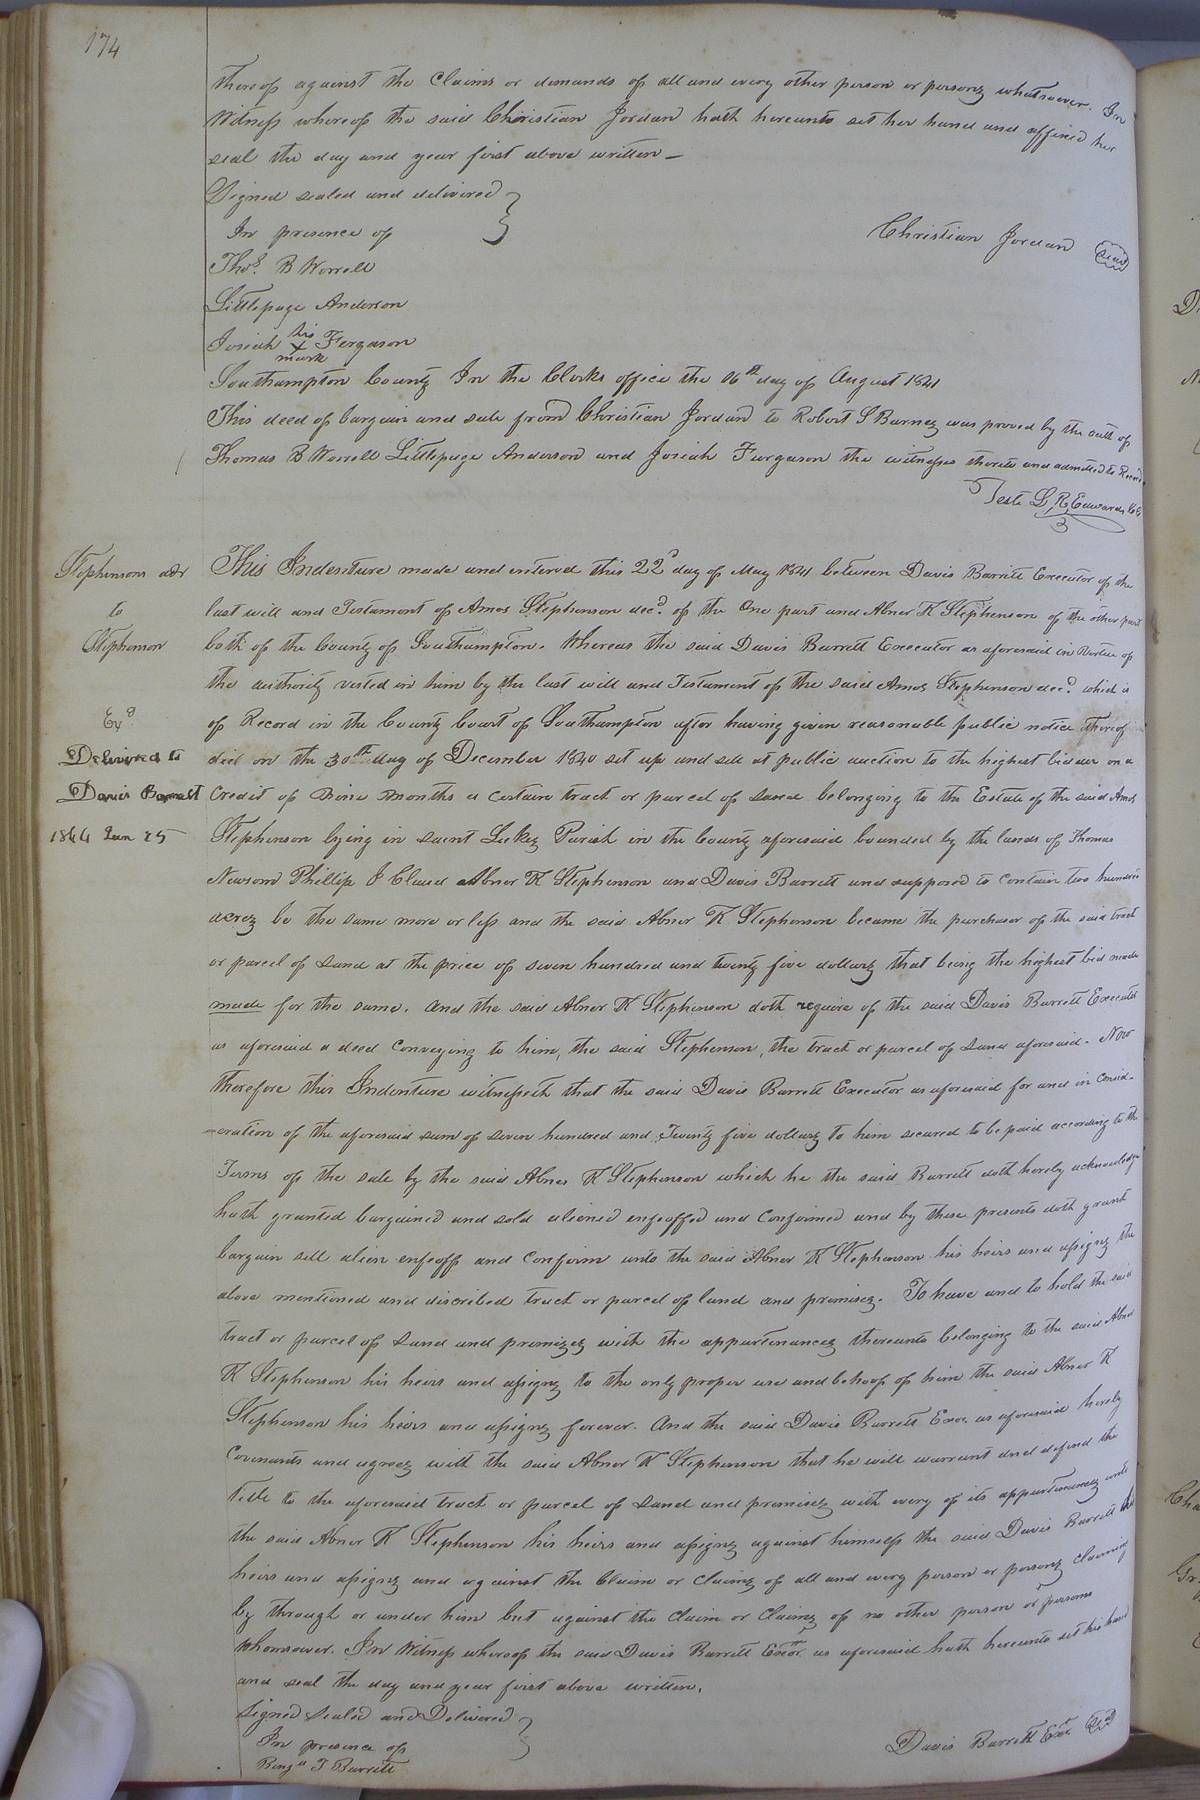 174
thereof against the Claims or demands of all and every other person or persons whatsoever. In
Witness whereof the said Christian Jordan hath hereunto set her hand and affixed her
seal the day and year first above written —
Signed sealed and delivered
In presence of
Christian Jordan Seal
Thos. B Worrell
Littlepage Anderson
Josiah his X mark Fergason
Southampton County In the Clerks office the 16th day of August 1841
This deed of bargain and sale from Christian Jordan to Robert S Barnes was proved by the oath of
Thomas B Worrell Littlepage Anderson and Josiah Furgason the witnesses thereto and admitted to Record
Teste L. R. Edwards
Stephensons
to
Stephenson
Exd
Delivered to
Davis Barrett
1844 Jan 25
This Indenture made and entered this 22d day of May 1841 between Davis Barrett Executor of the
last will and Testament of Amos Stephenson decd. of the One part and Abner K Stephenson of the other part
both of the County of Southampton. Whereas the said Davis Barrett Executor as aforesaid in Vertue of
the authority vested in him by the last will and Testament of the said Amos Stephenson decd. which is
of Record in the County Court of Southampton after having given reasonable public notice thereof
did on the 30th day of December 1840 set up and sell at public auction to the highest bidder on a
Credit of Nine Months a certain tract or parcel of Land belonging to the Estate of the said Amos
Stephenson lying in Saint Lukes Parish in the County aforesaid bounded by the lands of Thomas
Newsom Phillip J Claud Abner K Stephenson and Davis Barrett and supposed to contain two hundred
acres be the same more or less and the said Abner K Stephenson became the purchaser of the said tract
or parcel of Land at the price of seven hundred and twenty five dollars that being the highest bid made
made for the same. And the said Abner K Stephenson doth require of the said Davis Barrett Executor
as aforesaid a deed Conveying to him, the said Stephenson, the tract or parcel of Land aforesaid. Now
therefore this Indenture witnesseth that the said Davis Barrett Executor as aforesaid for and in consid-
-eration of the aforesaid sum of seven hundred and Twenty five dollars to him secured to be paid according to the
Terms of the sale by the said Abner K Stephenson which he the said Barrett doth hereby acknowledge
hath granted bargained and sold aliened enfeoffed and Confirmed and by these presents doth grant
bargain sell alien enfeoff and Confirm unto the said Abner K Stephenson his heirs and assigns the
above mentioned and discribed tract or parcel of land and premises. To have and to hold the said
tract or parcel of Land and premises with the appurtenances thereunto belonging to the said Abner
K Stephenson his heirs and assigns to the only proper use and behoof of him the said Abner K
Stephenson his heirs and assigns forever. And the said Davis Barrett Exor. as aforesaid hereby
Covenants and agrees with the said Abner K Stephenson that he will warrant and defend the
title to the aforesaid tract or parcel of Land and premises with every of its appurtenances unto
the said Abner K Stephenson his heirs and assigns against himself the said Davis Barrett his
heirs and assigns and against the Claim or Claims of all and every person or persons claiming
by through or under him but against the Claim or Claims of no other person or persons
Whomsoever. In Witness whereof the said Davis Barrett Exor as aforesaid hath hereunto set his hand
and seal the day and year first above written.
Signed Sealed and Delivered
In presence of
Davis Barrett Exor Seal
Benjn T Barrett